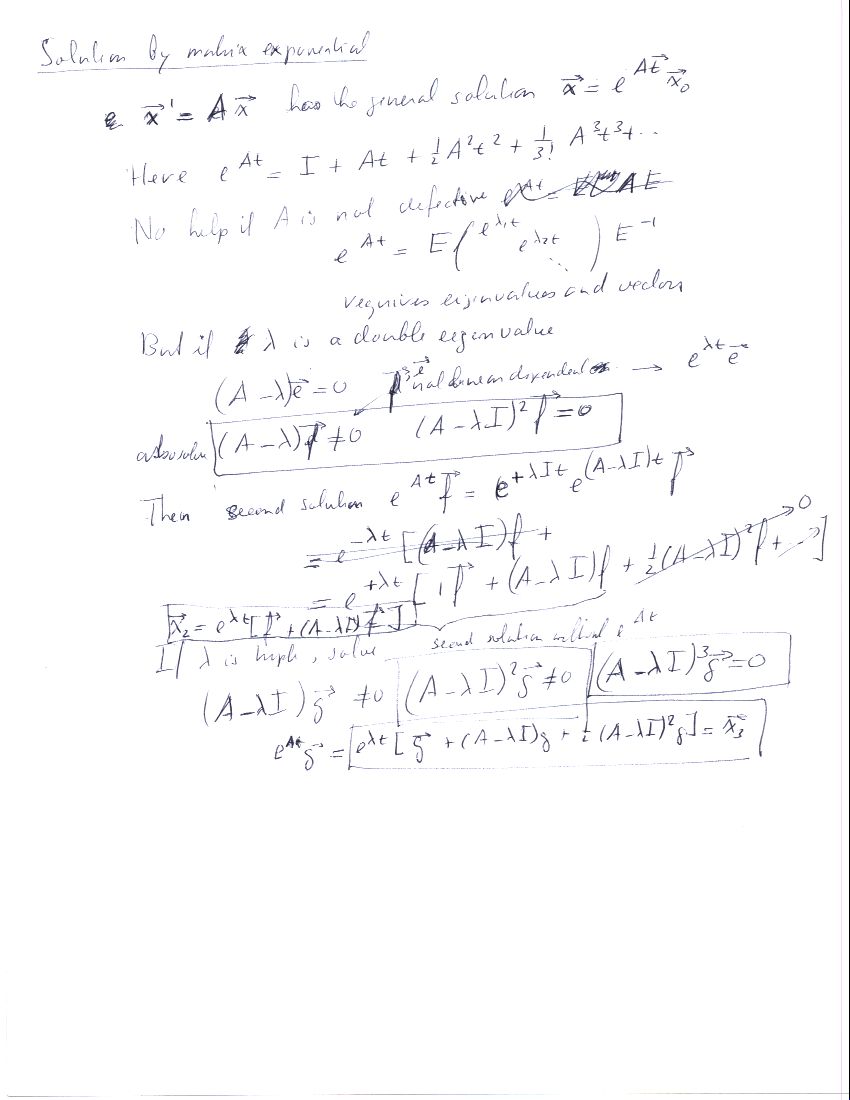 Solution by matrix exponential
x⃗' = A x⃗ has the general solution x⃗ = e^{At} x⃗₀
Here e^{At} = I + At + ½A²t² + 1/3! A³t³+...
No help if A is not defective
e^{At} = E ( e^{λ₁t} e^{λ₂t} ⋱ ) E⁻¹
requires eigenvalues and vectors
But if λ is a double eigenvalue
(A − λ)e⃗ = 0 not linear dependent → e^{λt} e⃗
also solve (A − λ)f⃗ ≠ 0 (A − λI)² f⃗ = 0
Then second solution e^{At} f⃗ = e^{+λIt} e^{(A−λI)t} f⃗
= e^{−λt} [(A − λI)f +
= e^{+λt} [ 1 f⃗ + (A − λI)f + ½(A − λI)² f + ...] → 0
x⃗₂ = e^{λt}[f⃗ + (A − λI) f⃗ ]
second solution without e^{At}
If λ is triple, solve
(A − λI) g⃗ ≠ 0 (A − λI)² g⃗ ≠ 0 (A − λI)³ g⃗ = 0
e^{At} g⃗ = e^{λt} [ g⃗ + (A − λI)g + ½ (A − λI)² g] = x⃗₃